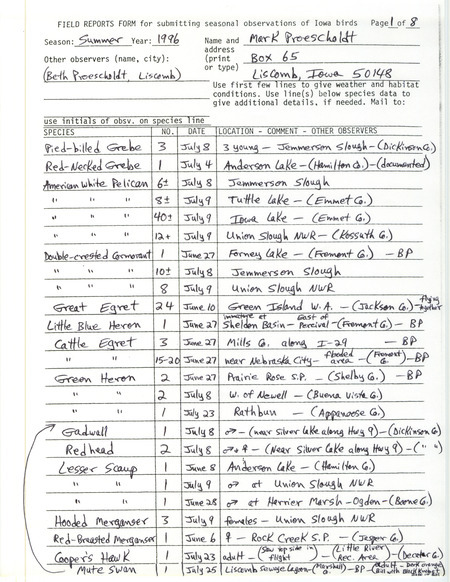 FIELD REPORTS FORM for submitting seasonal observations of Iowa birds Page 1 of 8
Season: Summer Year: 1996 Name and Mark Proescholdt
address
Other observers (name, city): (print Box 65
or type)
(Beth Proescholdt, Liscomb) Liscomb, Iowa 50148
Use first few lines to give weather and habitat
conditions. Use line(s) below species data to
give additional details. if needed. Mail to:
use initials of obsv. on species line
SPECIES NO. DATE LOCATION - COMMENT - OTHER OBSERVERS
Pied-billed Grebe 3 July 8 3 young - Jemmerson Slough - (Dickinson Co.)
Red-Necked Grebe 1 July 4 Anderson Lake - (Hamilton Co.) - (documented)
American White Pelican 6± July 8 Jemmerson Slough
" " 8± July 9 Tuttle Lake - (Emmet Co.)
" " 40± July 9 Iowa Lake - (Emmet Co.)
" " 12+ July 9 Union Slough NWR - (Kossuth Co.)
Double-crested Cormorant 1 June 27 Forney Lake - (Fremont Co.) - BP
" " 10± July 8 Jemmerson Slough
" " 8 July 9 Union Slough NWR
Great Egret 24 June 10 Green Island W.A. - (Jackson Co.) - flying together
Little Blue Heron 1 June 27 immature at Sheldon Basin - East of Percival - (Fremont Co.) - BP
Cattle Egret 3 June 27 Mills Co. along I-29 - BP
" " 15-20 June 27 near Nebraska City - flooded area - (Fremont Co.) - BP
Green Heron 2 June 27 Prairie Rose S.P. - (Shelby Co.) - BP
" " 2 July 8 W. of Newell - (Buena Vista Co.)
" " 1 July 23 Rathbun - (Appanoose Co.)
Gadwall 1 July 8 ♂ - (near Silver Lake along Hwy 9) - (Dickinson Co.)
Redhead 2 July 8 ♂+♀ - (Near Silver Lake along Hwy 9) - (" ")
Lesser Scaup 1 June 8 Anderson Lake - (Hamilton Co.)
" " 1 July 9 ♂ at Union Slough NWR
" " 1 June 28 ♂ at Harrier Marsh - Ogden - (Boone Co.)
Hooded Merganser 3 July 9 females - Union Slough NWR
Red-Breasted Merganser 1 June 6 ♀ - Rock Creek S.P. - (Jasper Co.)
Cooper's Hawk 1 July 23 adult - (Saw top side in flight) - (Little River Rec. Area) - (Decatur Co.)
Mute Swan 1 July 25 Liscomb Sewage Lagoon - (Marshall Co.) - BP